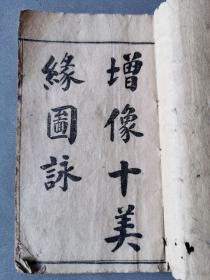 增像十美
緣圖詠